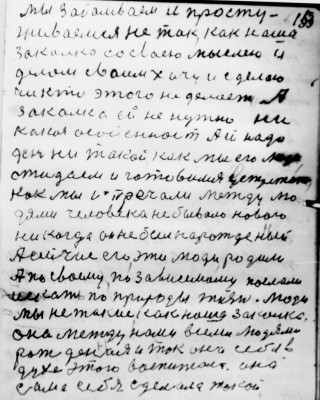 мы заболиваем и просту-
живаемся не так, как наша
Закалка со своею мыслею и
делом своим хочу и сделаю
никто этого не делает. А
закалка ей не нужно ни
какая особенност А ей надо
день ни такой как мы его
ожидаем и готовимся
как мы и встречали между лю
дями человека не бывало нового
никогда он не был нарожденый
А сейчас его эти люди родили
А по своему, по зависимому послали
искать по природы жизни. Люди
мы не такие как наша закалка.
она между нами всеми людями
рожденная и ток она себя в
духе этого воспитала. она
сама себя сделала такой